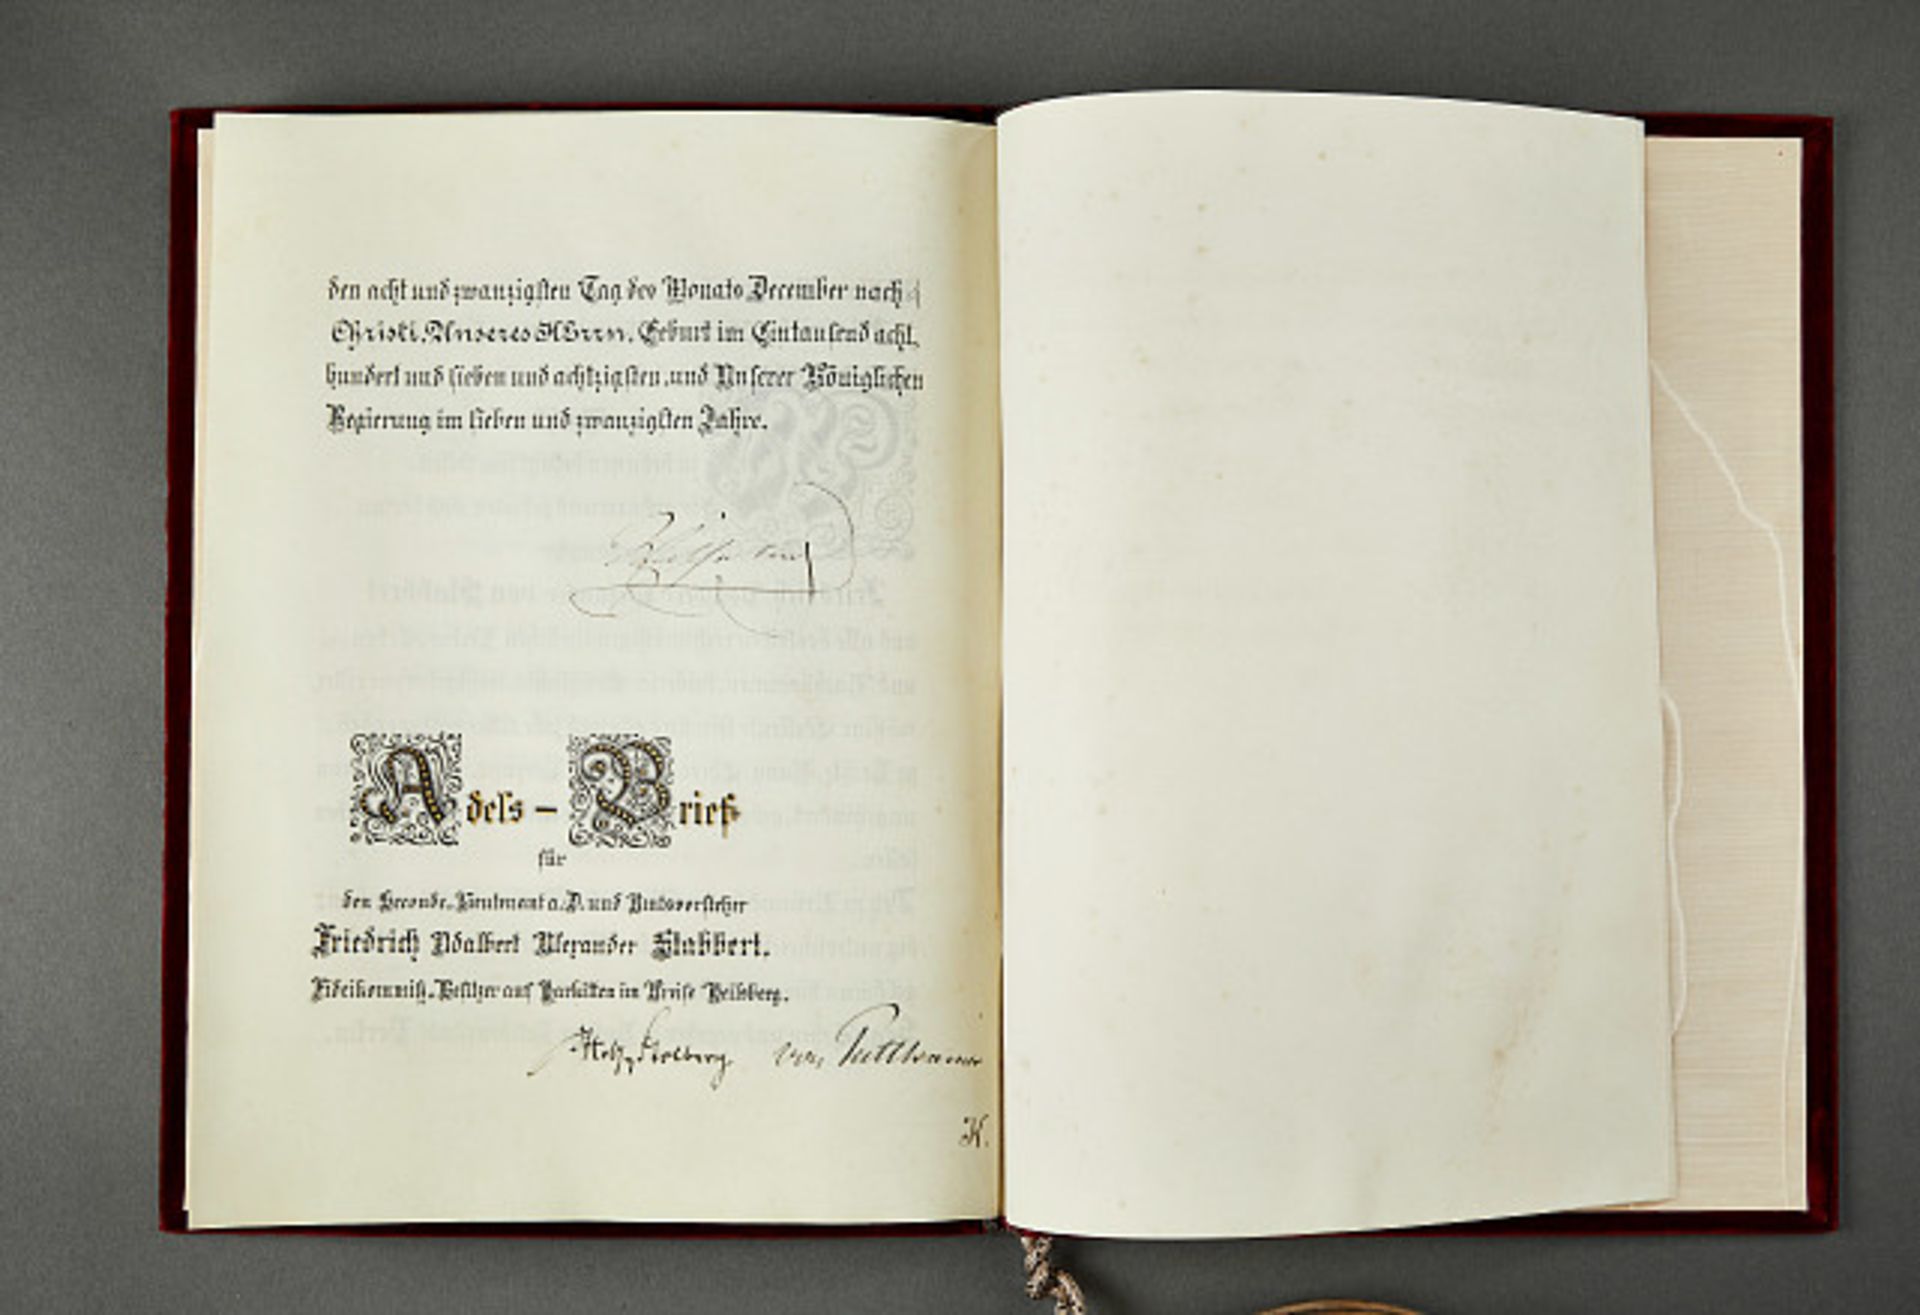 den acht und zwanzigsten Tag des Monats December nach
Christi, Unseres HErrn, Geburt im Eintausend acht,
hundert und sieben und achtzigsten, und Unserer Königlichen
Regierung im sieben und zwanzigsten Jahre.
Wilhelm
Adels-Brief
für
den Seconde-Lieutnant a. D. und Amtsvorsteher
Friedrich Adalbert Alexander Stabbert,
Fideikommiß-Besitzer auf Parkitten im Kreise Heilsberg.
Stolberg von Puttkamer
K.